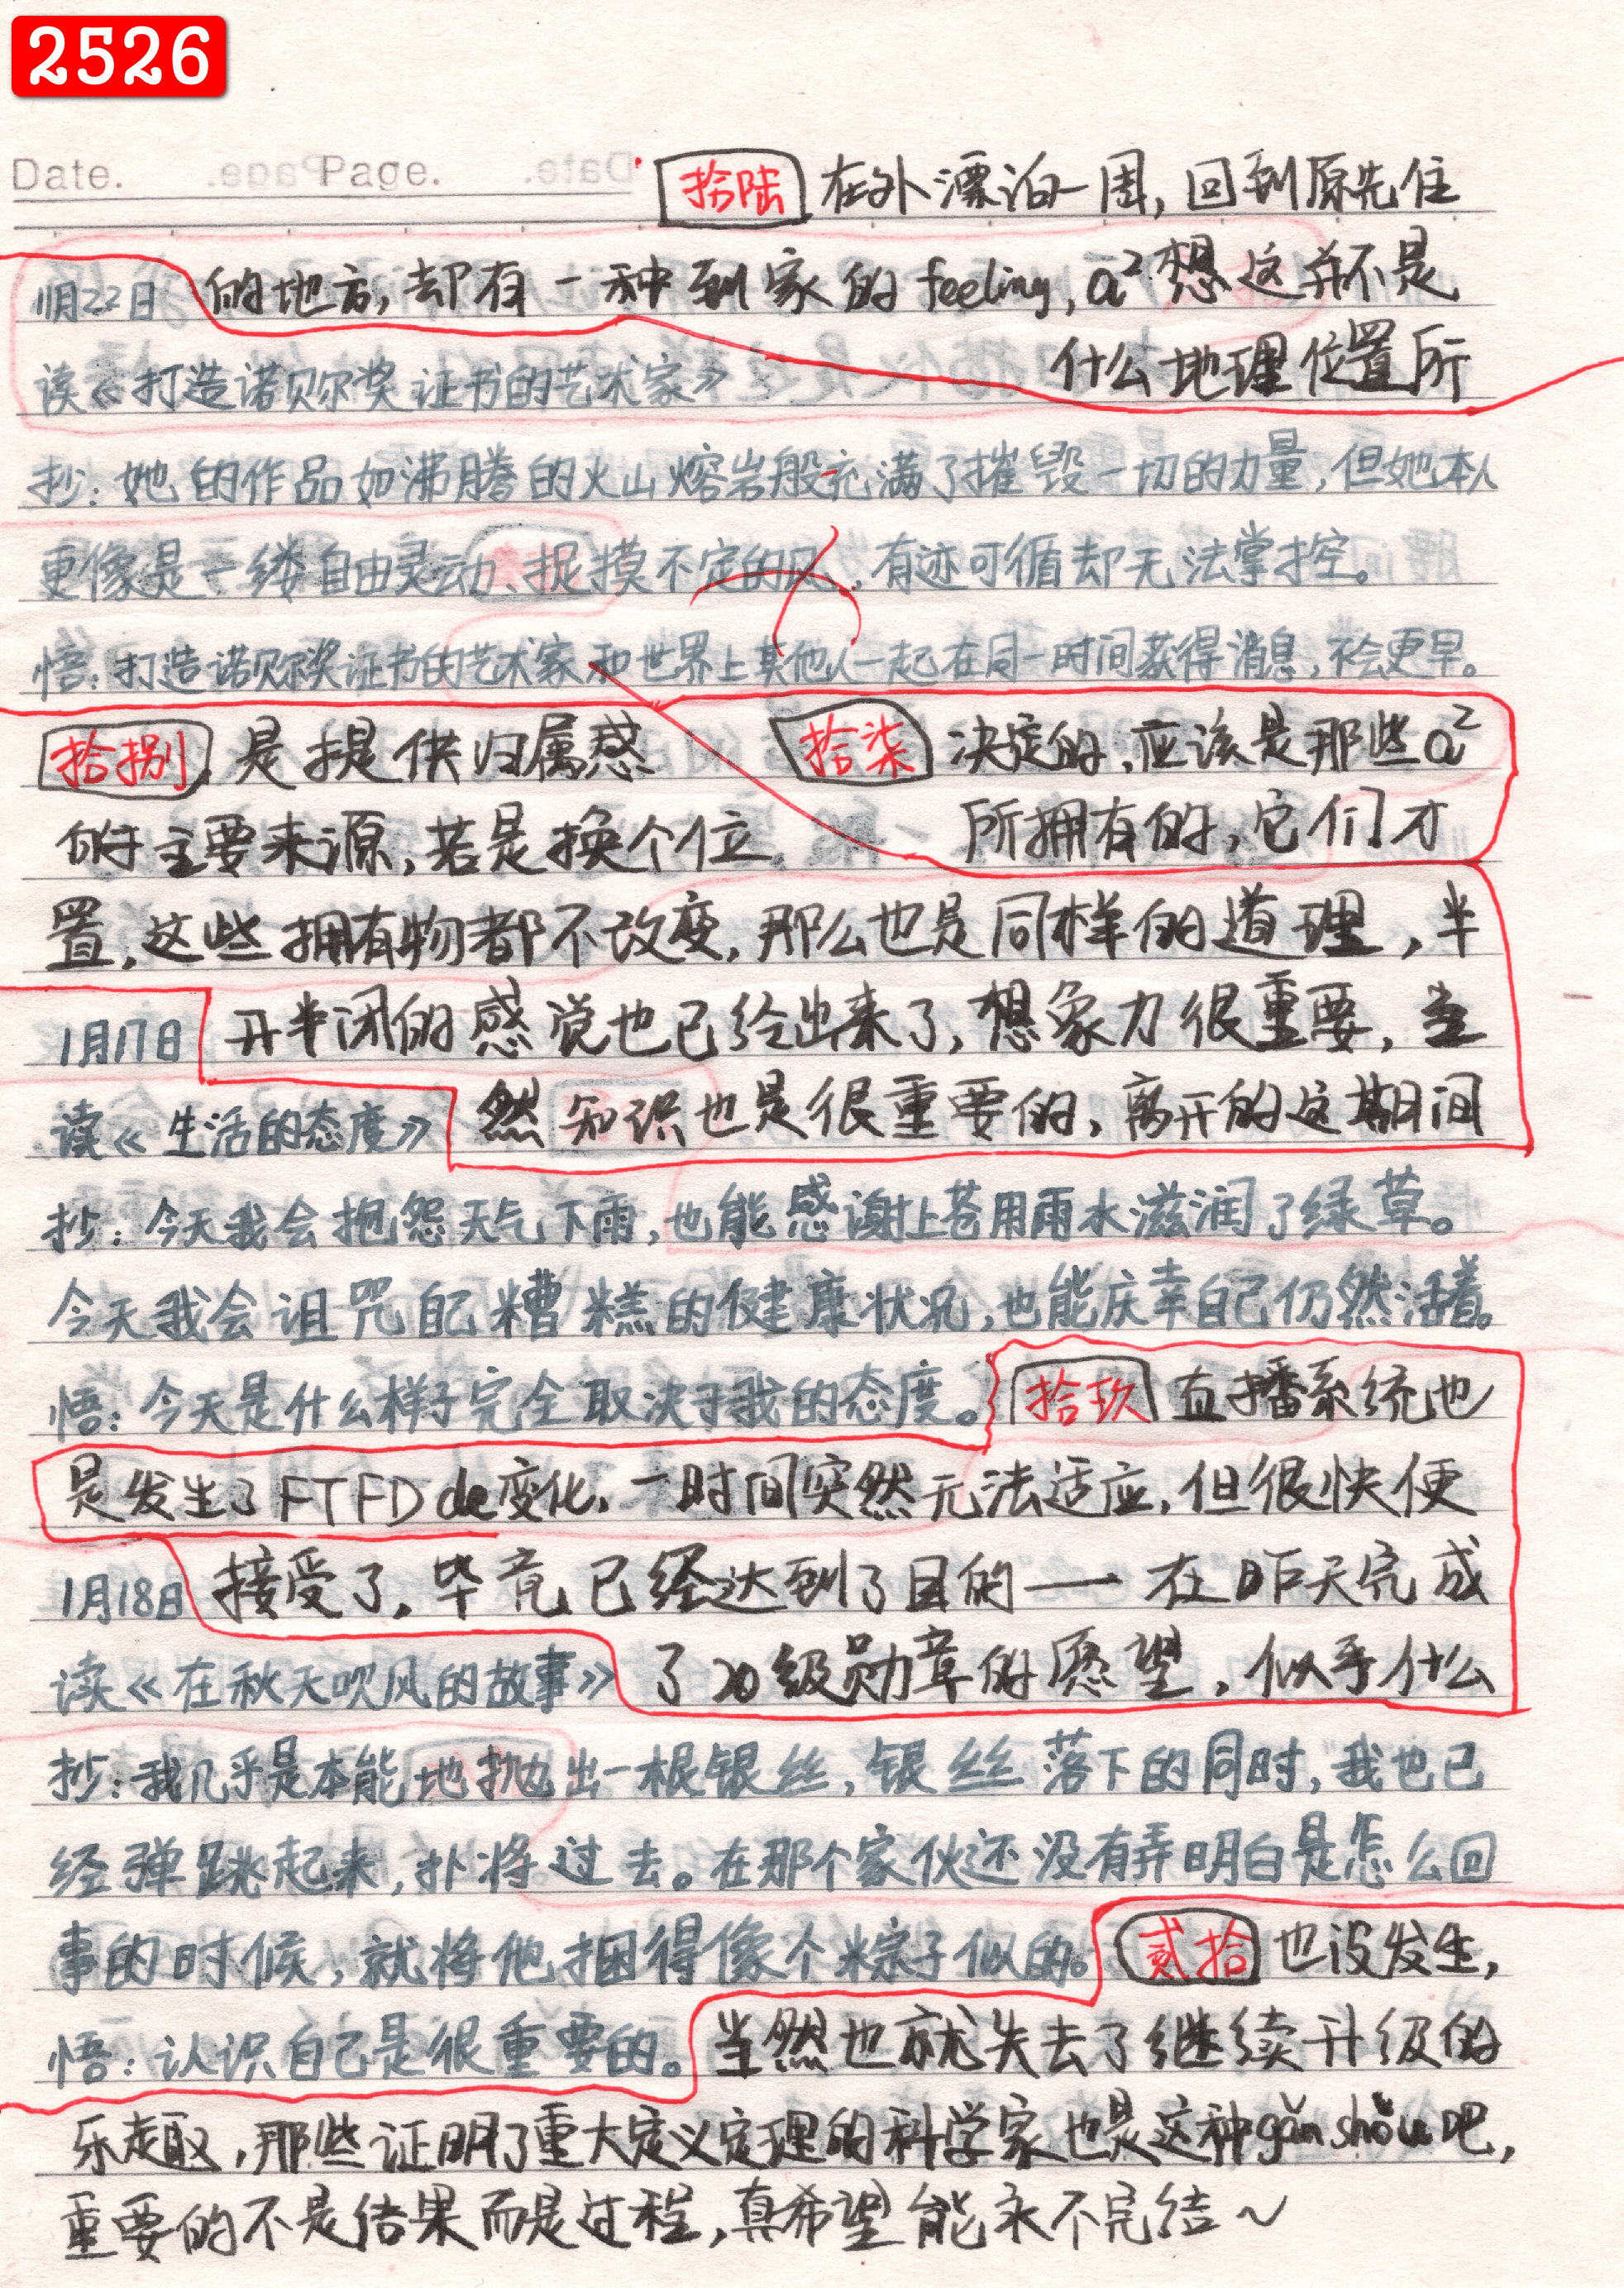 2526
Date. Page.
拾陆 在外漂泊一周,回到原先住
11月22日 的地方,却有一种到家的feeling,a²想这并不是
读《打造诺贝尔奖证书的艺术家》 什么地理位置所
抄:她的作品如沸腾的火山熔岩般充满了摧毁一切的力量,但她本人
更像是一缕自由灵动、捉摸不定的风,有迹可循却无法掌控。
悟:打造诺贝尔奖证书的艺术家和世界上其他人一起在同一时间获得消息,不会更早。
拾捌 是提供归属感 拾柒 决定的,应该是那些a²
的主要来源,若是换个位 所拥有的,它们才
置,这些拥有物都不改变,那么也是同样的道理,半
1月17日 开半闭的感觉也已给出来了,想象力很重要,当
读《生活的态度》 然知识也是很重要的,离开的这期间
抄:今天我会抱怨天气下雨,也能感谢上苍用雨水滋润了绿草。
今天我会诅咒自己糟糕的健康状况,也能庆幸自己仍然活着。
悟:今天是什么样子完全取决于我的态度。 拾玖 直播系统也
是发生了FTFD de变化,一时间突然无法适应,但很快便
1月18日 接受了,毕竟已经达到了目的——在昨天完成
读《在秋天吹风的故事》 了20级勋章的愿望,似乎什么
抄:我几乎是本能地抛出一根银丝,银丝落下的同时,我也已
经弹跳起来,扑将过去。在那个家伙还没有弄明白是怎么回
事的时候,就将他捆得像个粽子似的。 贰拾 也没发生,
悟:认识自己是很重要的。 当然也就失去了继续升级的
乐趣,那些证明了重大定义定理的科学家也是这种gǎn shòu吧,
重要的不是结果而是过程,真希望能永不完结~